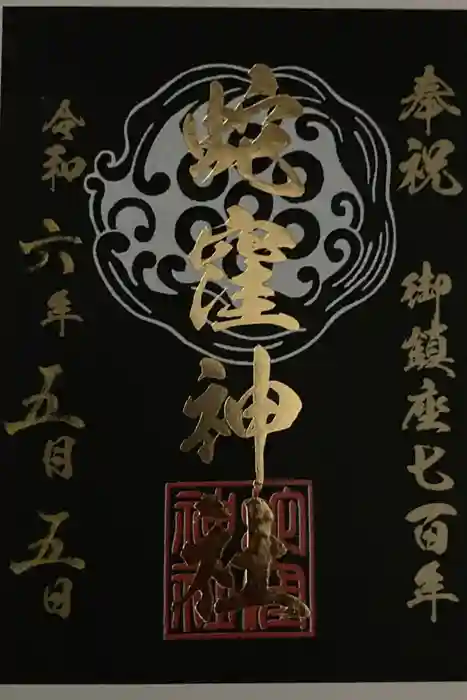 奉祝 御鎮座七百年
蛇窪神社
令和六年五月五日
蛇窪
神社